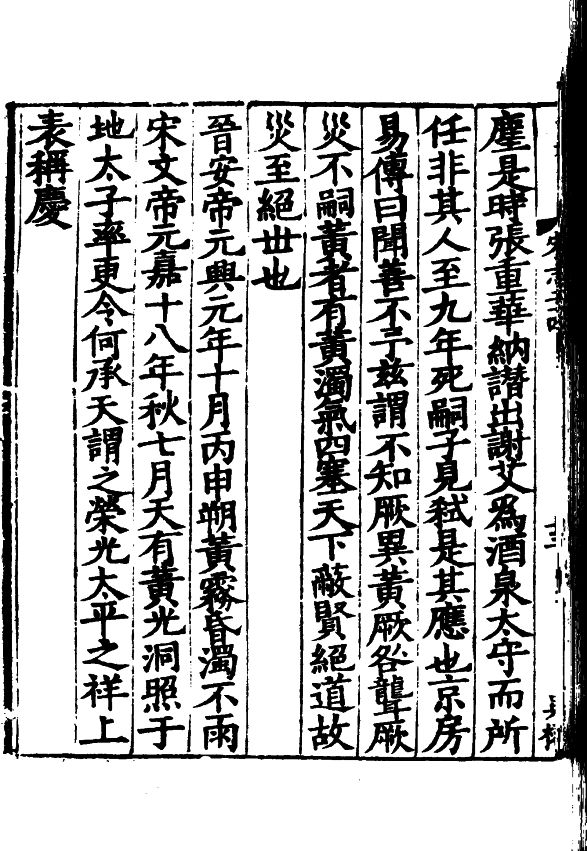 塵是時張重華納譖出謝艾爲酒泉太守而所
任非其人至九年死嗣子見弑是其應也京房
易傳曰聞善不予茲謂不知厥異黃厥咎聾厥
災不嗣黃者有黃濁氣四塞天下蔽賢絕道故
災至絕丗也
晉安帝元興元年十月丙申朔黃霧昏濁不雨
宋文帝元嘉十八年秋七月天有黃光洞照于
地太子率更令何承天謂之榮光太平之祥上
表稱慶